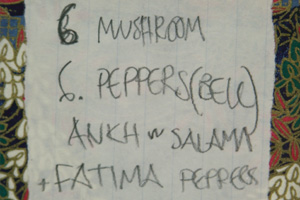 6 MUSHROOM
6. PEPPERS (BELL)
ANKH w SALAMA
+ FATIMA PEPPERS